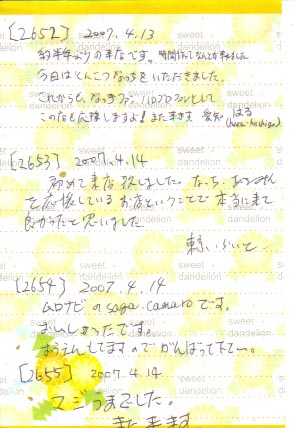 [2652] 2007.4.13
約半年ぶりの来店です。時間作してなんとか来れました
今日はとんこつなっちをいただきました。
これからも、なっちファン、ハロプロファンとして
このなも応援しますよ！また来ます 愛知 はる
[2653] 2007.4.14
初めて来店致しました。
を応援しているお店ということで本当に来て
良かったと思いました
東京
[2654] 2007.4.14
ムロナビのsaga.camaroです。
おいしかったです。
おうえんしてますのでがんばって下さい。
[2655] 2007.4.14
マジうまでした。
また来ます
sweet dandelion